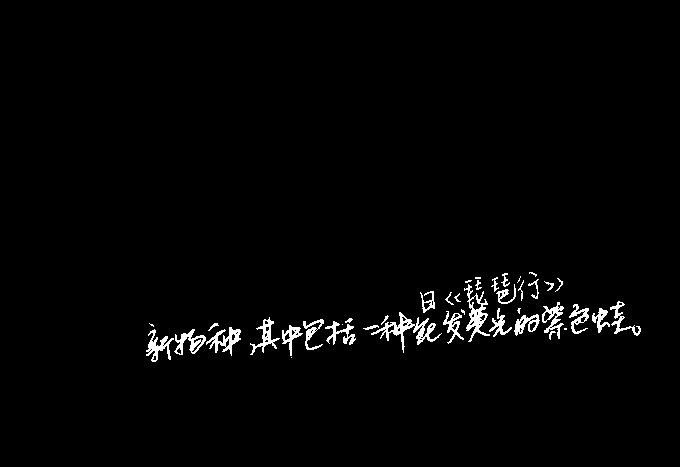 曰《琵琶行》
新物种,其中包括一种能发荧光的紫色蛙。